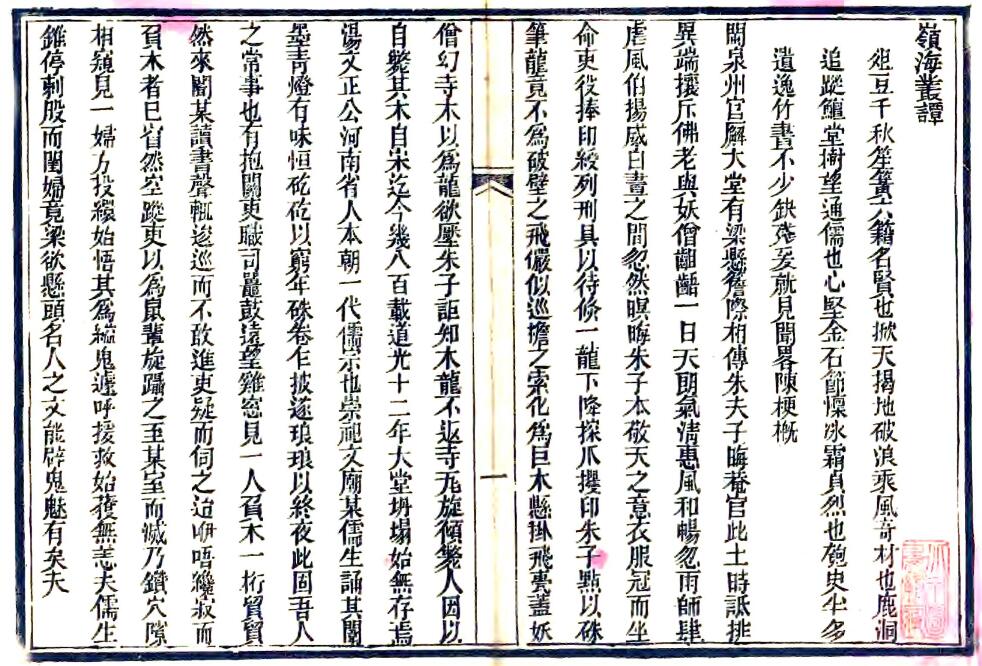 嶺海叢譚
俎豆千秋笙簧六籍名賢也掀天揭地破浪乘風奇材也鹿洞
追蹤鱣堂樹望通儒也心堅金石節懍冰霜貞烈也稗史尘多
遺逸竹書不少缺殘爰就見聞畧陳梗概
閩泉州官廨大堂有梁懸簷際相傳朱夫子晦菴官此土時詆排
異端攘斥佛老與妖僧齟齬一日天朗氣清惠風和暢忽雨師肆
虐風伯揚威白晝之間忽然暝晦朱子本敬天之意衣服冠而坐
命吏役捧印綬列刑具以待倏一龍下降探爪攫印朱子點以硃
筆龍竟不為破壁之飛儼似巡擔之索化為巨木懸掛飛甍蓋妖
僧幻寺木以為龍欲壓朱子詎知木龍不返寺旡旋傾斃人因以
自斃其木自宋迄今幾八百載道光十二年大堂坍塌始無存焉
湯文正公河南省人本朝一代儒宗也崇祀文廟某儒生誦其闈
墨青燈有味恒矻矻以窮年硃卷乍披遂琅琅以終夜此固吾人
之常事也有抱關吏職司鼉鼓遠望雞窓見一人負木一桁貿貿
然來闖某讀書聲輒逡巡而不敢進吏疑而伺之迨咿唔纔寂而
負木者已窅然空蹤吏以為鼠輩旋躡之至某室而滅乃鑽穴隙
相窺見一婦方投繯始悟其為縊鬼遽呼援救始獲無恙夫儒生
錐停刺股而閨婦竟梁欲懸頭名人之文能辟鬼魅有矣夫
一